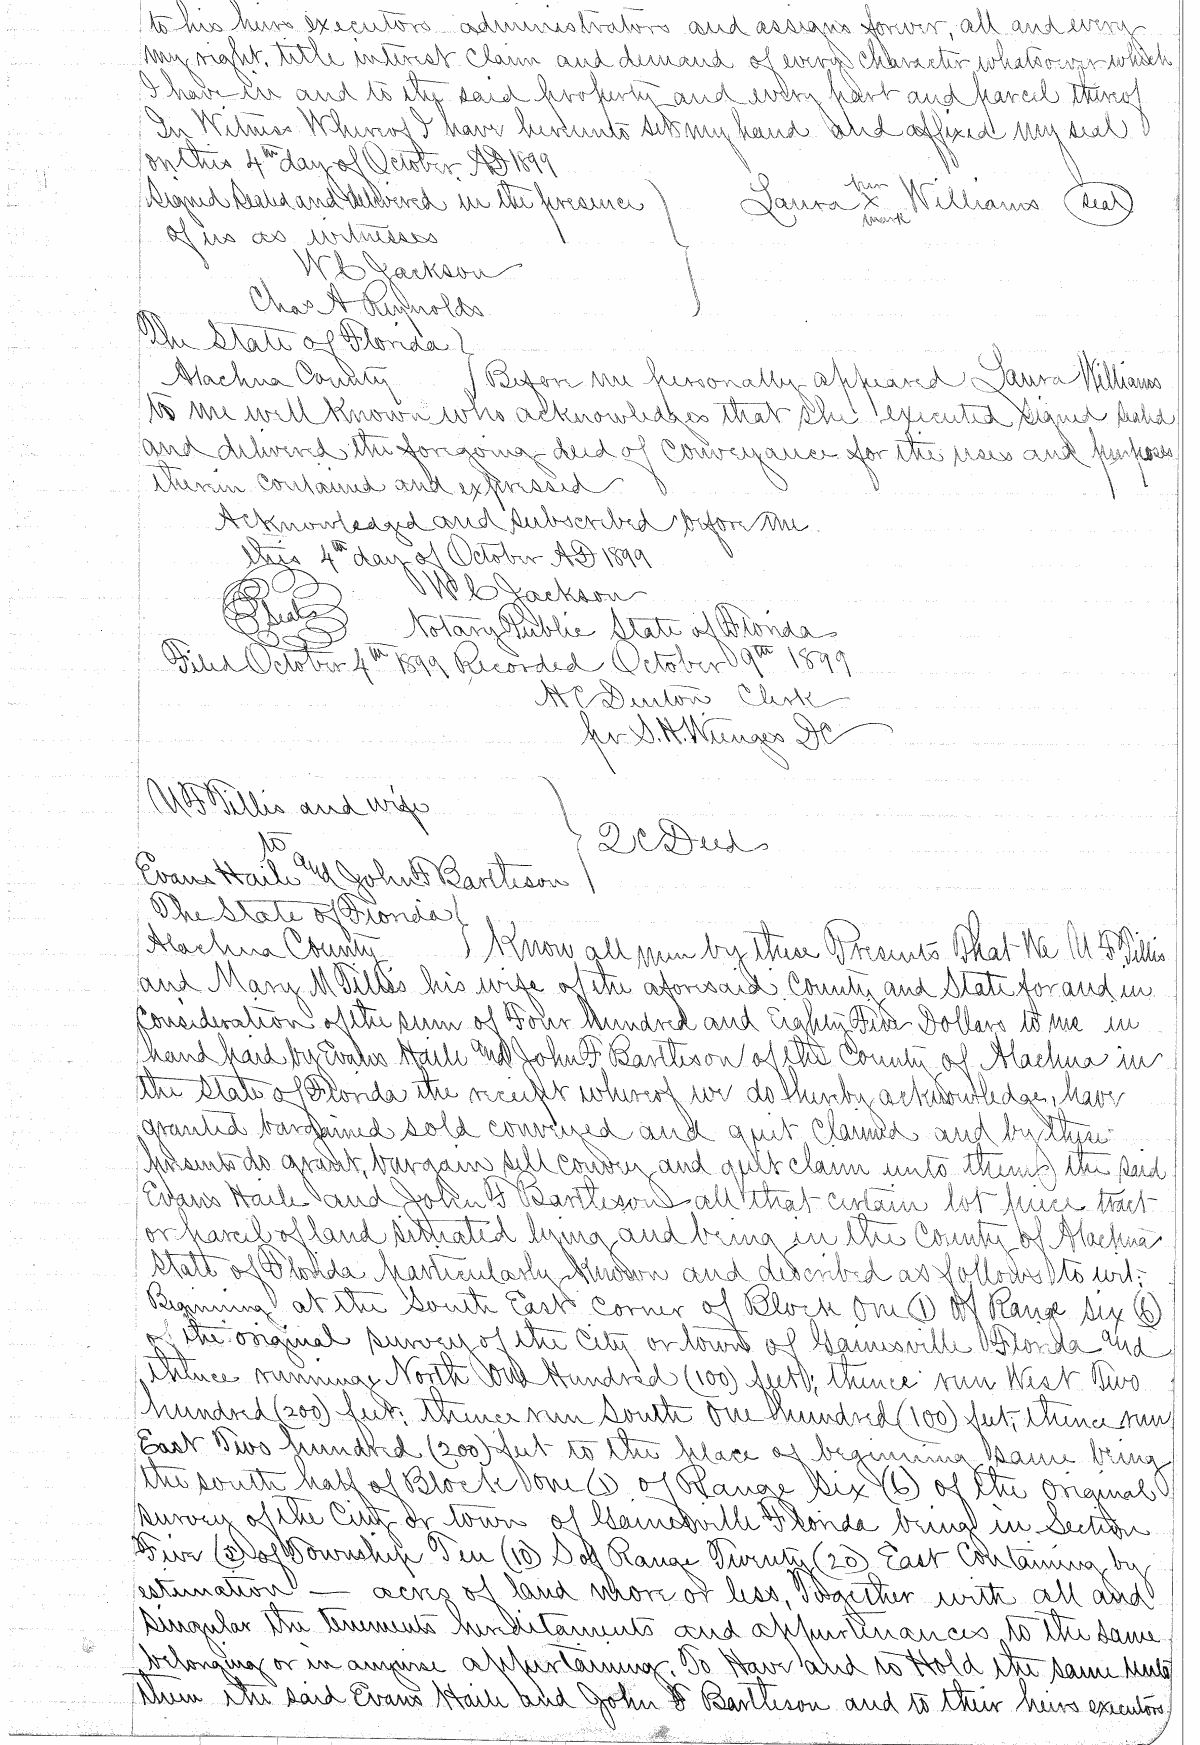 to his heirs executors administrators and assigns forever, all and every
my right, title interest claim and demand of every character whatsoever which
I have in and to the said property and every part and parcel thereof
In Witness Whereof I have hereunto set my hand and affixed my seal
on this 4th day of October AD 1899
Signed Sealed and delivered in the presence
of us as witnesses
Laura her x mark Williams (seal)
W C Jackson
Chas A Reynolds
The State of Florida
Alachua County Before me personally appeared Laura Williams
to me well known who acknowledges that she executed signed sealed
and delivered the forgoing deed of conveyance for the uses and purposes
therein contained and expressed
Acknowledged and subscribed before me
this 4th day of October AD 1899
W C Jackson
Seal
Notary Public State of Florida
Filed October 4th 1899 Recorded October 9th 1899
H C Denton Clerk
per S. H. Wienges DC
and wife
to
Evans Haile and John F Bartleson
Q C Deed
The State of Florida
Alachua County Know all men by these Presents That We Tillis
and Mary M Tillis his wife of the aforesaid County and State for and in
consideration of the sum of Four hundred and Eighty Five Dollars to me in
hand paid by Evans Haile and John F Bartleson of the County of Alachua in
the State of Florida the receipt whereof we do hereby acknowledge, have
granted bargained sold conveyed and quit claimed and by these
presents do grant, bargain sell convey and quit claim unto them the said
Evans Haile and John F Bartleson all that certain lot piece tract
or parcel of land situated lying and being in the County of Alachua
State of Florida particularly known and described as follows to wit:
Beginning at the South East corner of Block One (1) of Range Six (6)
of the original survey of the City or town of Gainesville Florida and
thence running North One Hundred (100) feet; thence run West Two
hundred (200) feet; thence run South One hundred (100) feet; thence run
East Two hundred (200) feet to the place of beginning same being
the south half of Block One (1) of Range Six (6) of the original
survey of the City or town of Gainesville Florida being in Section
Five (5) of Township Ten (10) S of Range Twenty (20) East Containing by
estimation — acres of land more or less, Together with all and
singular the tenements hereditaments and appurtenances to the same
belonging or in anywise appertaining. To Have and to Hold the same unto
them the said Evans Haile and John F Bartleson and to their heirs executors